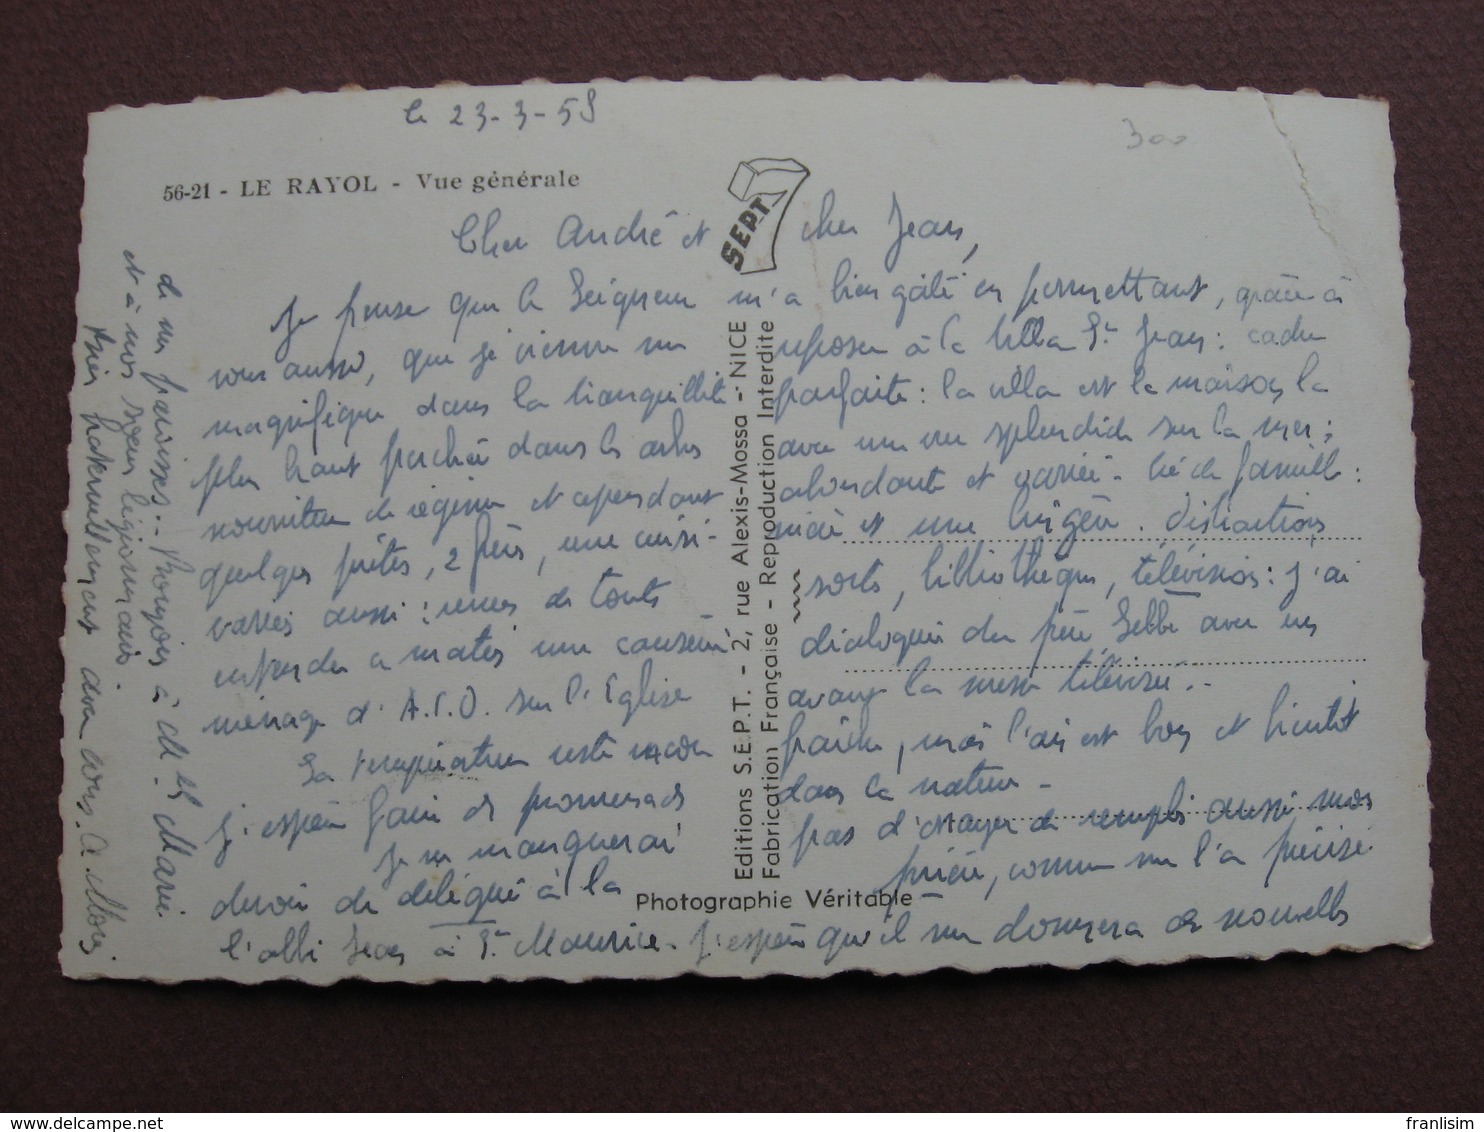 le 23-3-58
300
56-21 - LE RAYOL - Vue générale
SEPT
Cher André et cher Jean,
Je pense que le Seigneur m'a bien gâté en permettant, grâce à
vous aussi, que je vienne me reposer à la Villa St Jean : cadre
magnifique dans la tranquillité parfaite : la villa est la maison la
plus haut perchée dans les arbres avec une vue splendide sur la mer ;
nourriture de régime et cependant abondante et variée. Vie de famille :
quelques prêtres, 2 frères, une cuisinière et une lingère. Distractions
variées aussi : revues de toutes sortes, bibliothèque, télévision : j'ai
entendu ce matin une causerie dialoguée du père Lebbe avec un
ménage d'A.C.O. sur l'Eglise avant la messe télévisée.
La température reste encore fraîche, mais l'air est bon et bientôt
j'espère faire des promenades dans la nature.
Je ne manquerai pas d'essayer de remplir aussi mon
devoir de délégué à la prière, comme me l'a précisé
l'abbé Jean à St Maurice. J'espère qu'il me donnera des nouvelles
de ma paroisse. Bonjour à Mr et Marie
et à nos soeurs légionnaires.
Bien fraternellement avec vous. A.
Editions S.E.P.T. - 2, rue Alexis-Mossa - NICE
Fabrication Française - Reproduction Interdite
Photographie Véritable
franlisim